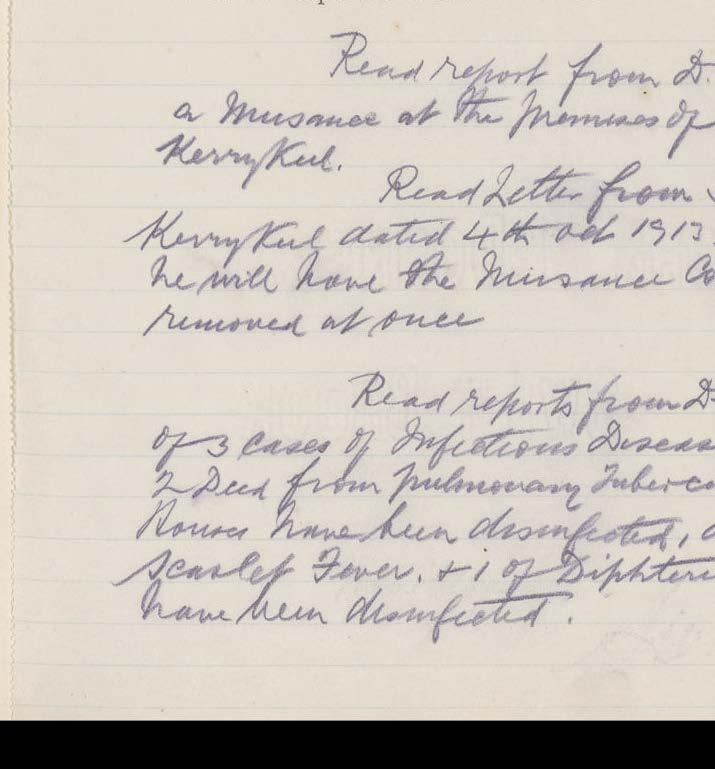 Read report from D.
a Nuisance at the Premises of
KerryKeel.
Read Letter from
KerryKeel dated 4th Oct 1913
he will have the Nuisance Co
removed at once
Read reports from D
of 3 cases of Infectious Diseas
2 Died from pulmonary Tubercu
Houses have been disinfected,
Scarlet Fever. + 1 of Diphteri
have been disinfected.